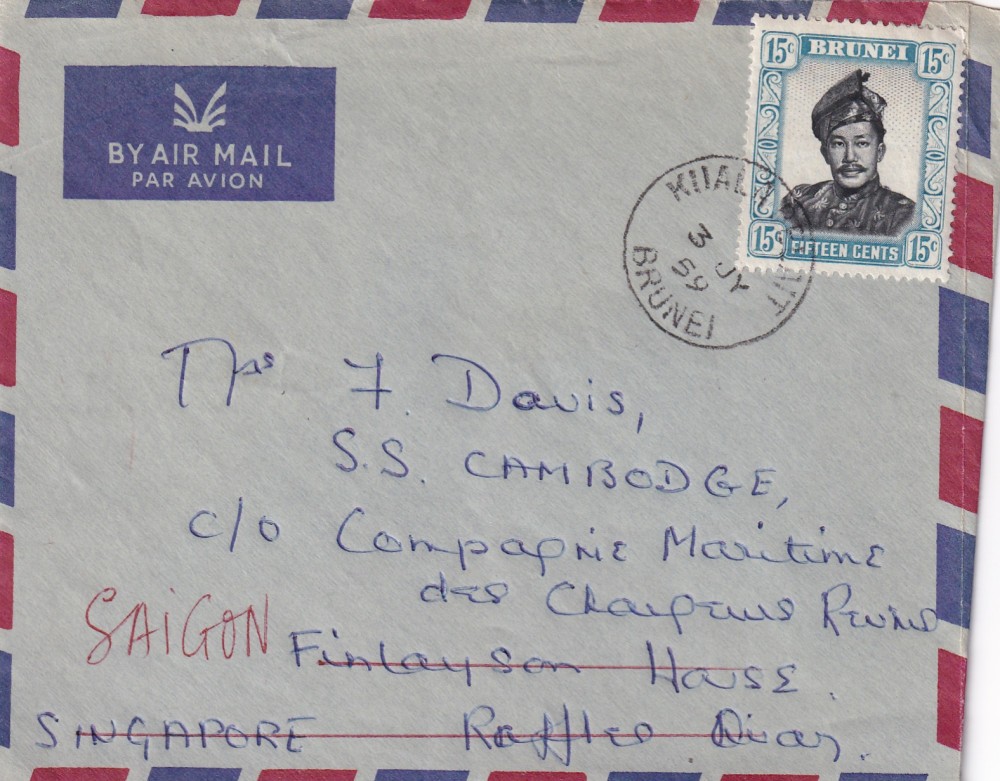 BY AIR MAIL
PAR AVION
15c BRUNEI 15c
15c FIFTEEN CENTS 15c
KUALA BELAIT
3 JY
59
BRUNEI
Mrs F. Davis,
S.S. CAMBODGE,
c/o Compagnie Maritime
des Chargeurs Reunis
SAIGON
Finlayson House.
SINGAPORE Raffles Quay.